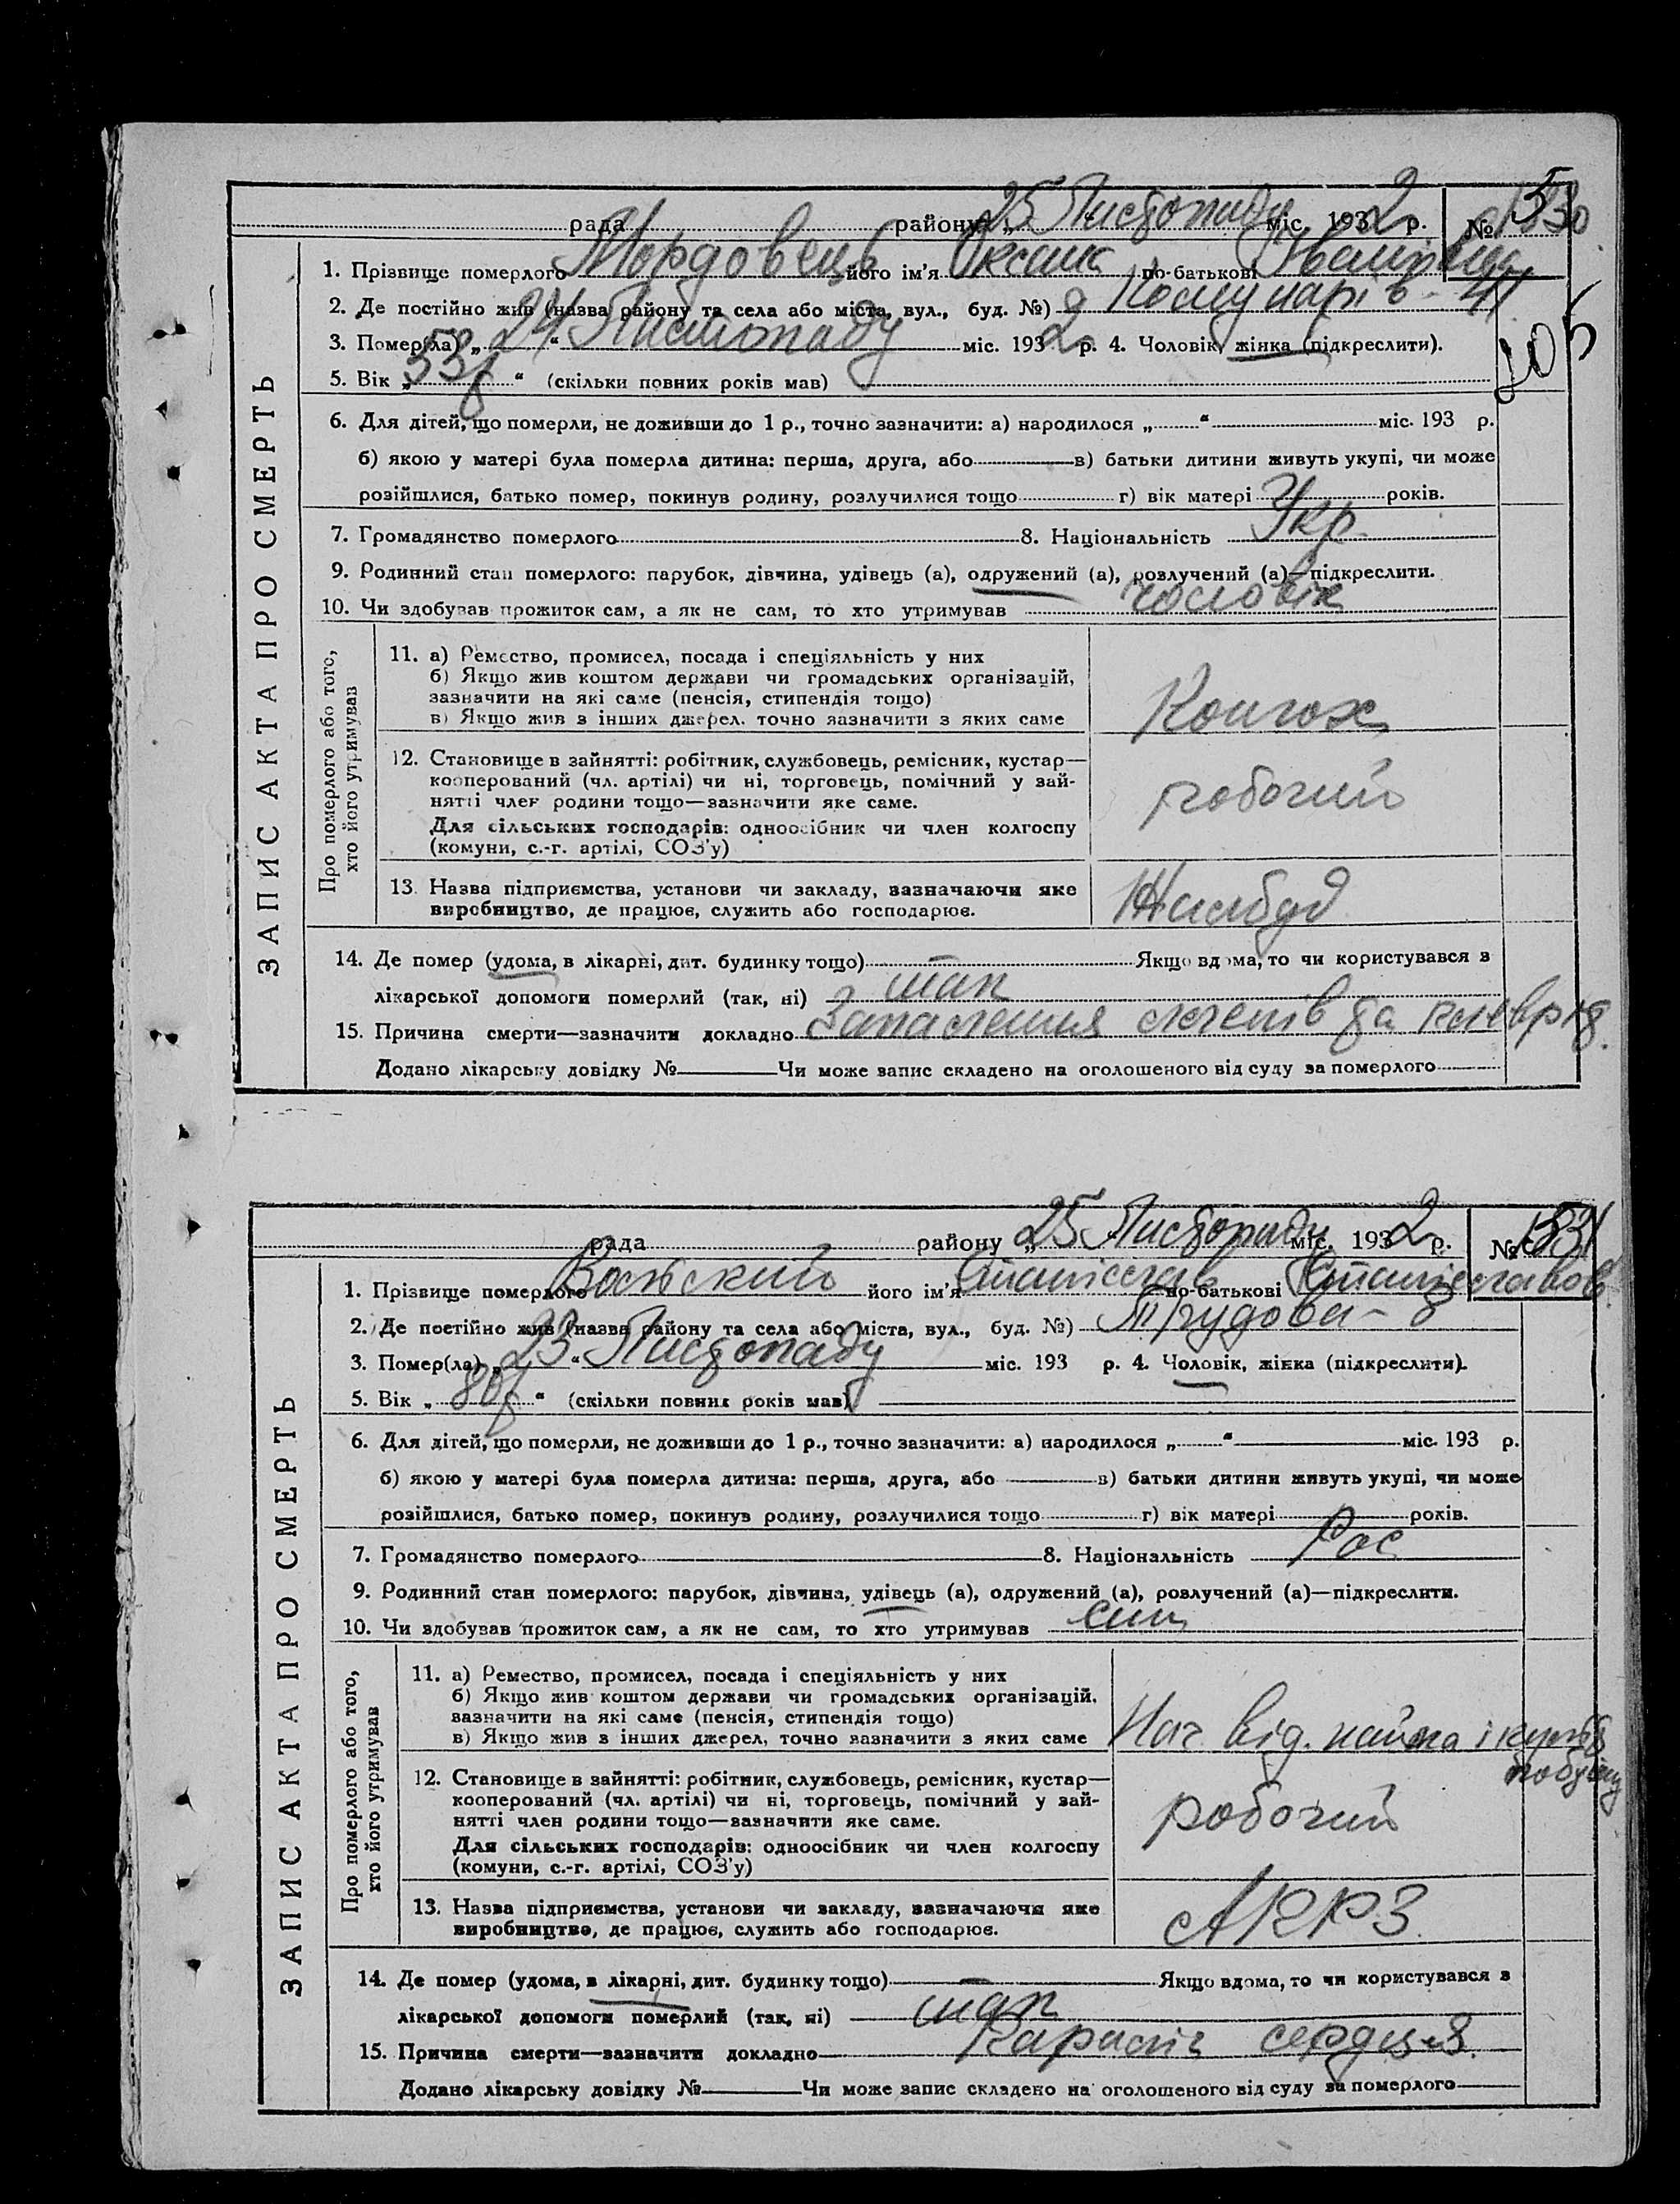 рада району „25 Листопаду міс. 1932 р. № 530
1. Прізвище померлого Мордовець його ім'я Оксана по-батькові Іванівна
2. Де постійно жив (назва району та села або міста, вул., буд. №) Комунарів - 41
3. Помер(ла) „24“ Листопаду міс. 1932 р. 4. Чоловік, жінка (підкреслити).
5. Вік „53 “ (скільки повних років мав)
6. Для дітей, що померли, не доживши до 1 р., точно зазначити: а) народилося „ “ міс. 193 р.
б) якою у матері була померла дитина: перша, друга, або в) батьки дитини живуть укупі, чи може
розійшлися, батько помер, покинув родину, розлучилися тощо г) вік матері років.
7. Громадянство померлого 8. Національність Укр.
9. Родинний стан померлого: парубок, дівчина, удівець (а), одружений (а), розлучений (а)—підкреслити.
10. Чи здобував прожиток сам, а як не сам, то хто утримував чоловік
ЗАПИС АКТА ПРО СМЕРТЬ
Про померлого або того,
хто його утримував
11. а) Ремество, промисел, посада і спеціяльність у них
б) Якщо жив коштом держави чи громадських організацій,
зазначити на які саме (пенсія, стипендія тощо)
в) Якщо жив з інших джерел, точно зазначити з яких саме
Конюх
12. Становище в зайнятті: робітник, службовець, ремісник, кустар—
кооперований (чл. артілі) чи ні, торговець, помічний у зай-
нятті член родини тощо—зазначити яке саме.
Для сільських господарів: одноосібник чи член колгоспу
(комуни, с.-г. артілі, СОЗ'у)
робочий
13. Назва підприємства, установи чи закладу, зазначаючи яке
виробництво, де працює, служить або господарює.
Жилбуд
14. Де помер (удома, в лікарні, дит. будинку тощо) Якщо вдома, то чи користувався з
лікарської допомоги померлий (так, ні) так
15. Причина смерти—зазначити докладно Запалення легенів да плеврід.
Додано лікарську довідку № Чи може запис складено на оголошеного від суду за померлого
рада району „25 Листопаду міс. 1932 р. № 531
1. Прізвище померлого його ім'я Станіслав по-батькові Станіславов.
2. Де постійно жив (назва району та села або міста, вул., буд. №) Трудова - 8
3. Помер(ла) „23“ Листопаду міс. 193 р. 4. Чоловік, жінка (підкреслити).
5. Вік „80 “ (скільки повних років мав)
6. Для дітей, що померли, не доживши до 1 р., точно зазначити: а) народилося „ “ міс. 193 р.
б) якою у матері була померла дитина: перша, друга, або в) батьки дитини живуть укупі, чи може
розійшлися, батько помер, покинув родину, розлучилися тощо г) вік матері років.
7. Громадянство померлого 8. Національність Рос
9. Родинний стан померлого: парубок, дівчина, удівець (а), одружений (а), розлучений (а)—підкреслити.
10. Чи здобував прожиток сам, а як не сам, то хто утримував син
ЗАПИС АКТА ПРО СМЕРТЬ
Про померлого або того,
хто його утримував
11. а) Ремество, промисел, посада і спеціяльність у них
б) Якщо жив коштом держави чи громадських організацій,
зазначити на які саме (пенсія, стипендія тощо)
в) Якщо жив з інших джерел, точно зазначити з яких саме
Нач. від. найма і
12. Становище в зайнятті: робітник, службовець, ремісник, кустар—
кооперований (чл. артілі) чи ні, торговець, помічний у зай-
нятті член родини тощо—зазначити яке саме.
Для сільських господарів: одноосібник чи член колгоспу
(комуни, с.-г. артілі, СОЗ'у)
робочий
13. Назва підприємства, установи чи закладу, зазначаючи яке
виробництво, де працює, служить або господарює.
АРРЗ
14. Де помер (удома, в лікарні, дит. будинку тощо) Якщо вдома, то чи користувався з
лікарської допомоги померлий (так, ні) так
15. Причина смерти—зазначити докладно Параліч сердця.
Додано лікарську довідку № Чи може запис складено на оголошеного від суду за померлого